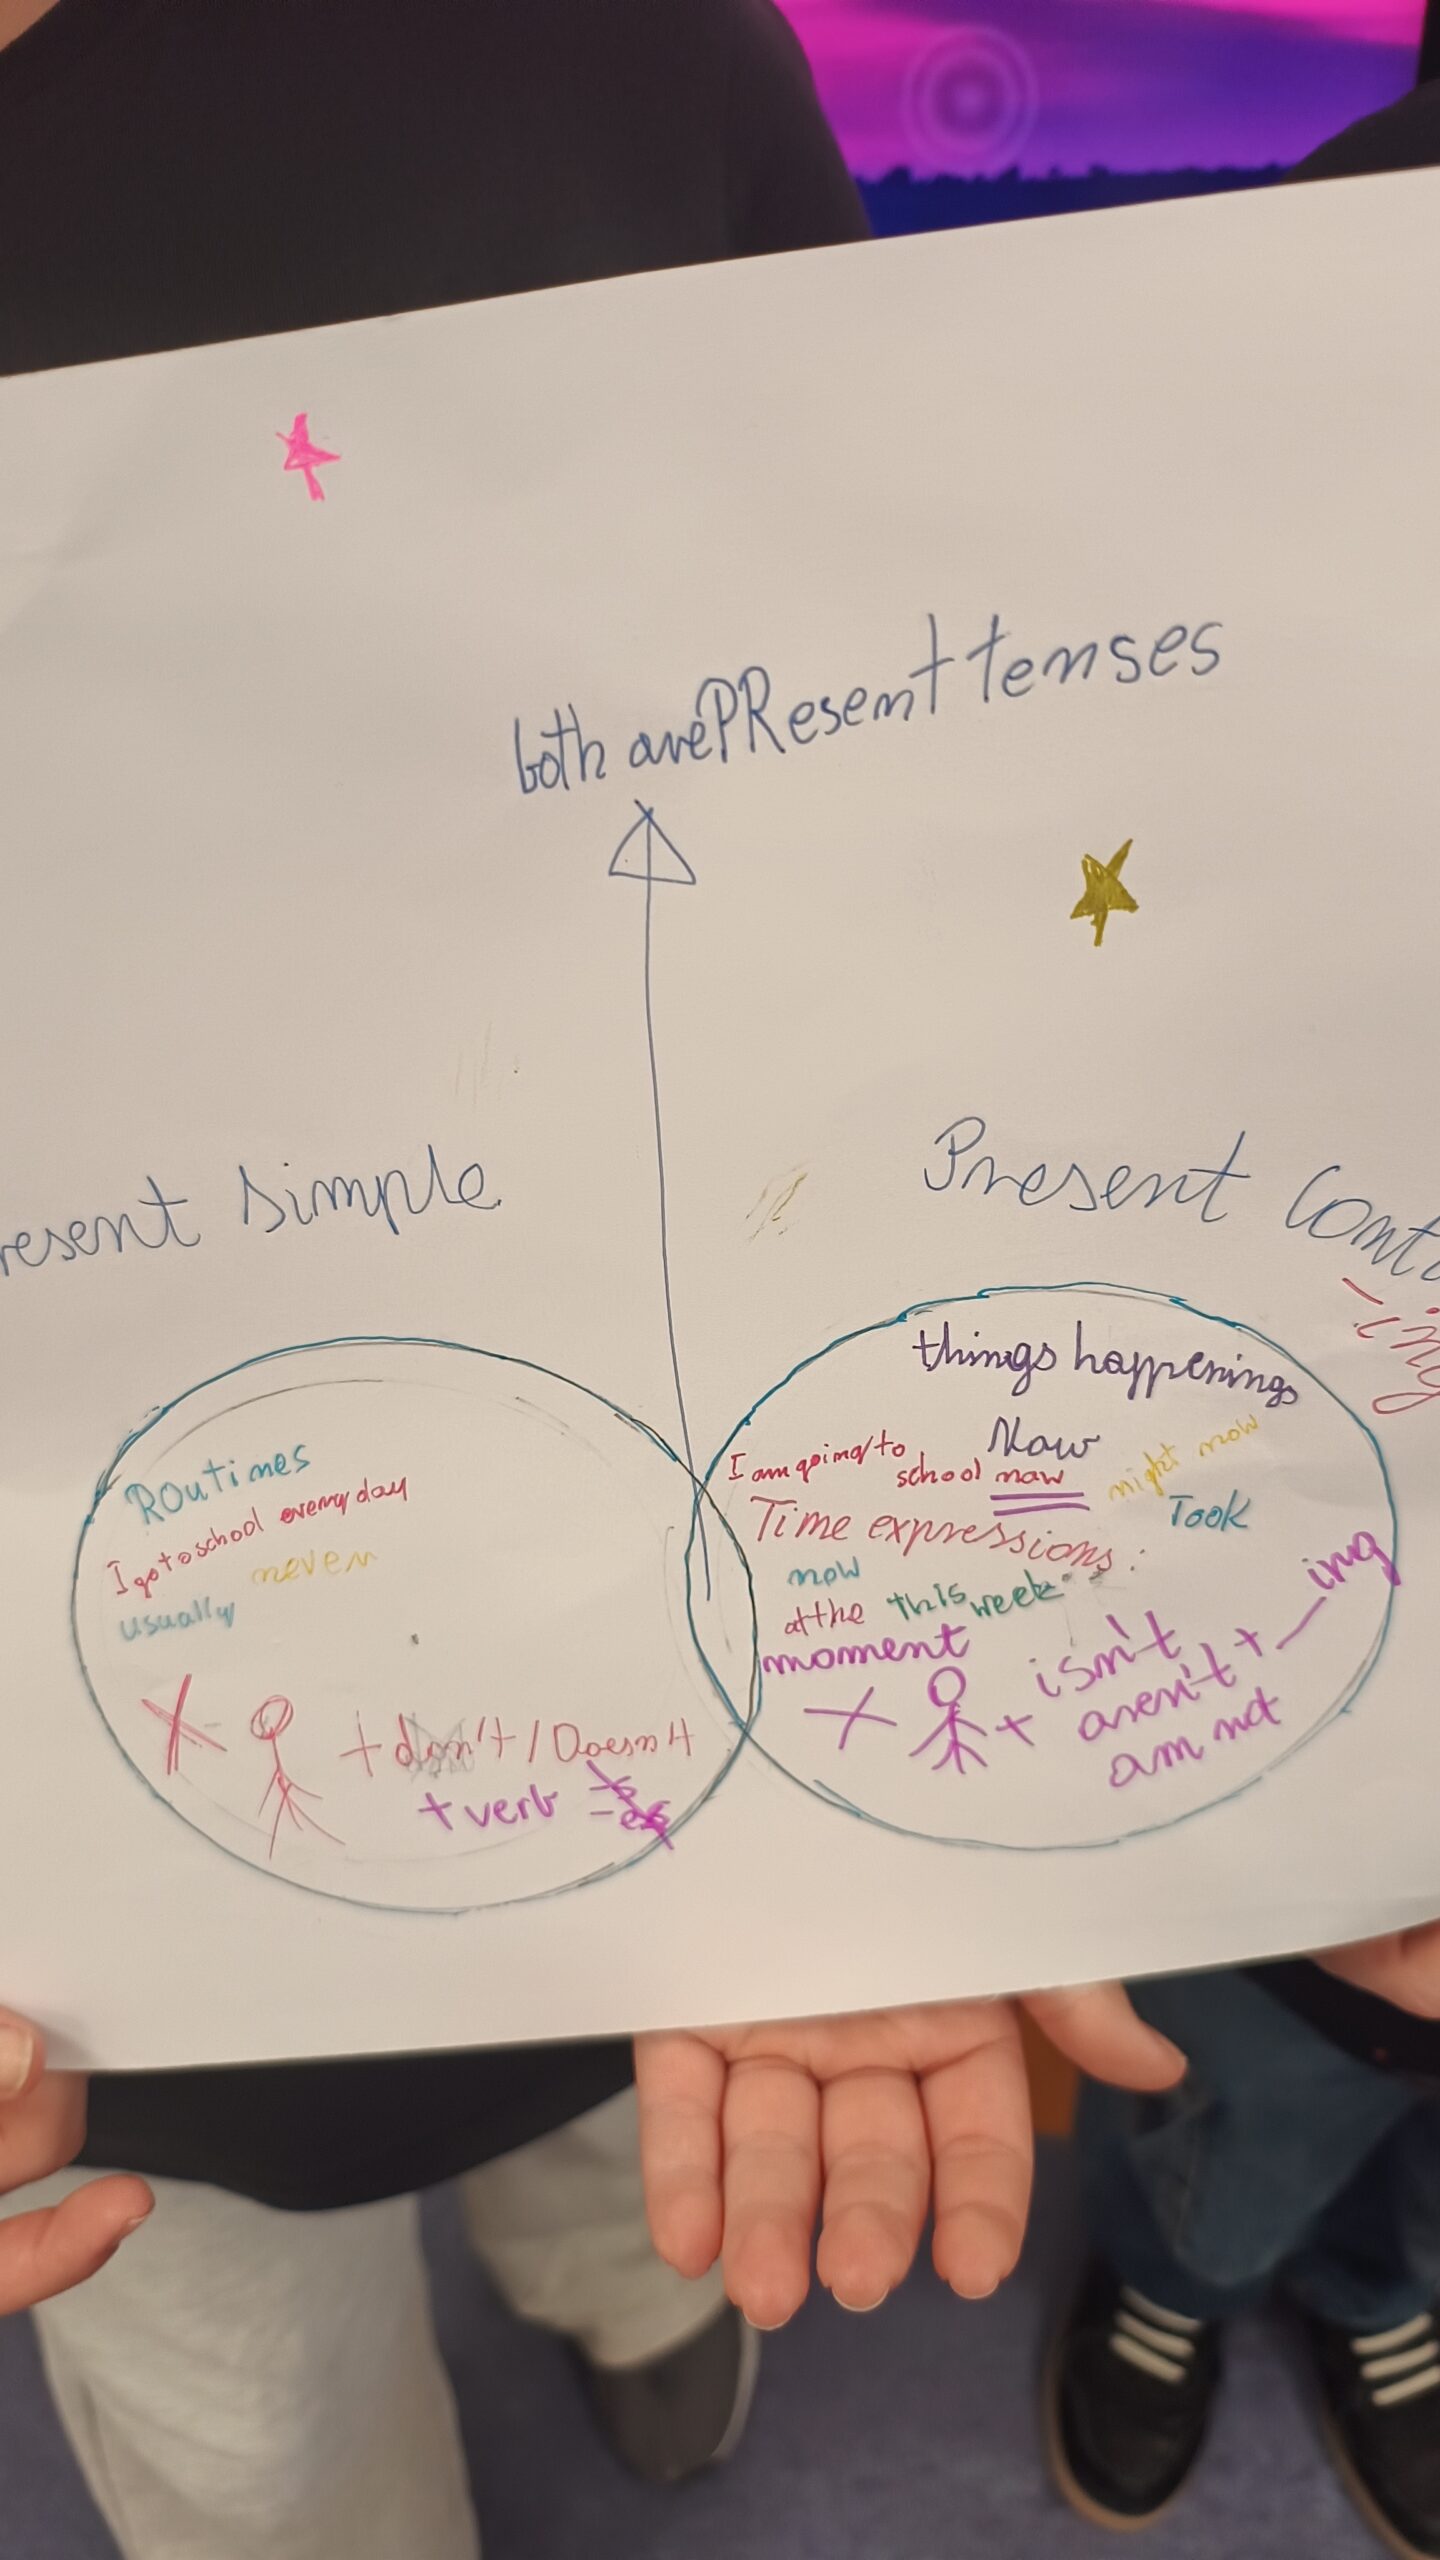 both are PResent tenses
resent simple
Present Conti
-ing
Routimes
I go to school every day
never
usually
X + don't / Doesn't
+ verb -s
-es
things happenings
Now
I am going to
school now
right now
Time expressions:
Took
now
at the this week
moment
X + isn't
aren't + __ing
am not